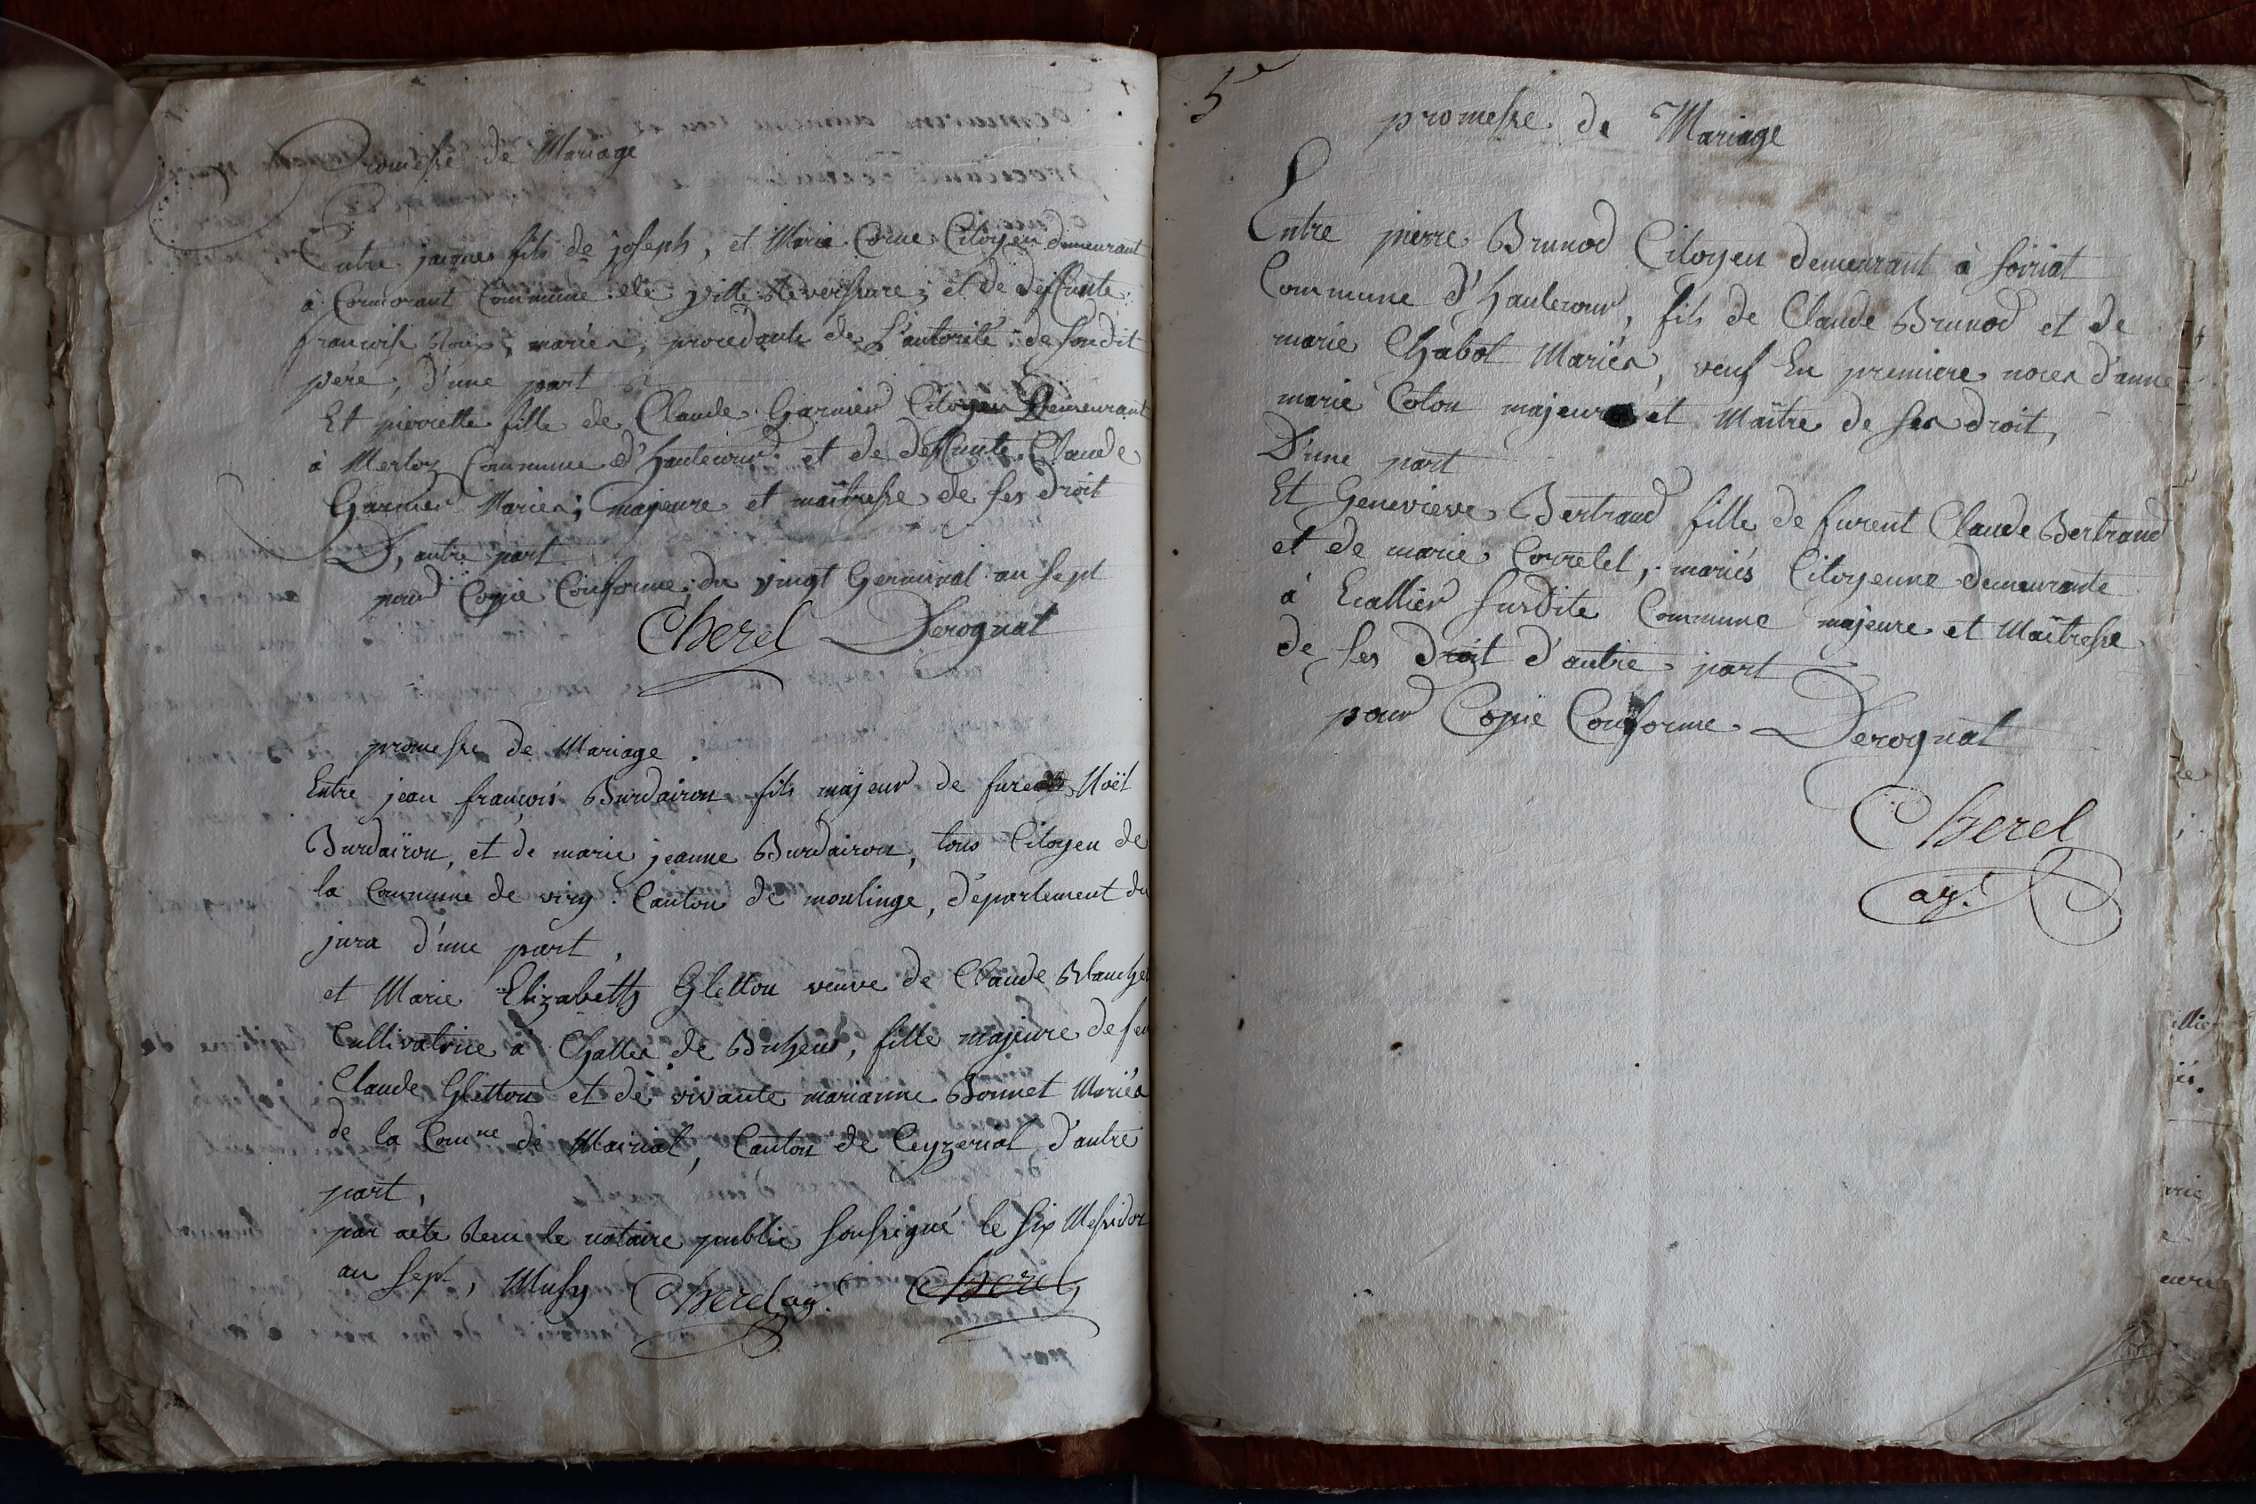 Promesse de Mariage
Entre jacques fils de joseph, et Marie Corne Citoyen demeurant
à Cormorant Commune de Ville Reversure; et de deffunte
francoise Roux, mariés, procedante de L'autorité de sondit
père, d'une part
Et pierrette fille de Claude Garnier Citoyen Demeurant
à Merloz Commune d'hautecour et de deffunte Claude
Garnier Mariés; majeure et maîtresse de ses droit
D, autre part
pour Copie Conforme; du vingt Germinal an sept
Cherel Derognat
promesse de Mariage
Entre jean françois Burdairon fils majeur de furent Noël
Burdairon, et de marie jeanne Burdairon, tous Citoyen de
la Commune de viry Canton de moulinge, département du
jura d'une part,
et Marie Elizabeth Gletton veuve de Claude Blanchet
Cultivatrice à Challes de Bohens, fille majeure de feu
Claude Gletton et de vivante marianne Bonnet Mariés
de la Comne de Mairiat, Canton de Ceyzeriat d'autre
part,
par acte Reçu le notaire public soussigné le six Messidor
an sept, Musy Cherel ag. Cherel
5e
promesse de Mariage
Entre pierre Brunod Citoyen demeurant à soiriat
Commune d'hautecour, fils de Claude Brunod et de
marie Chabot Mariés, veuf En premiere noces d'anne
marie Coton majeur et Maître de ses droit,
D'une part
Et Genevieve Bertrand fille de furent Claude Bertrand
et de marie Corretet, mariés Citoyenne demeurante
à Ecallier susdite Commune majeure et Maîtresse
de ses droit d'autre part
pour Copie Conforme Derognat
Cherel
ag.